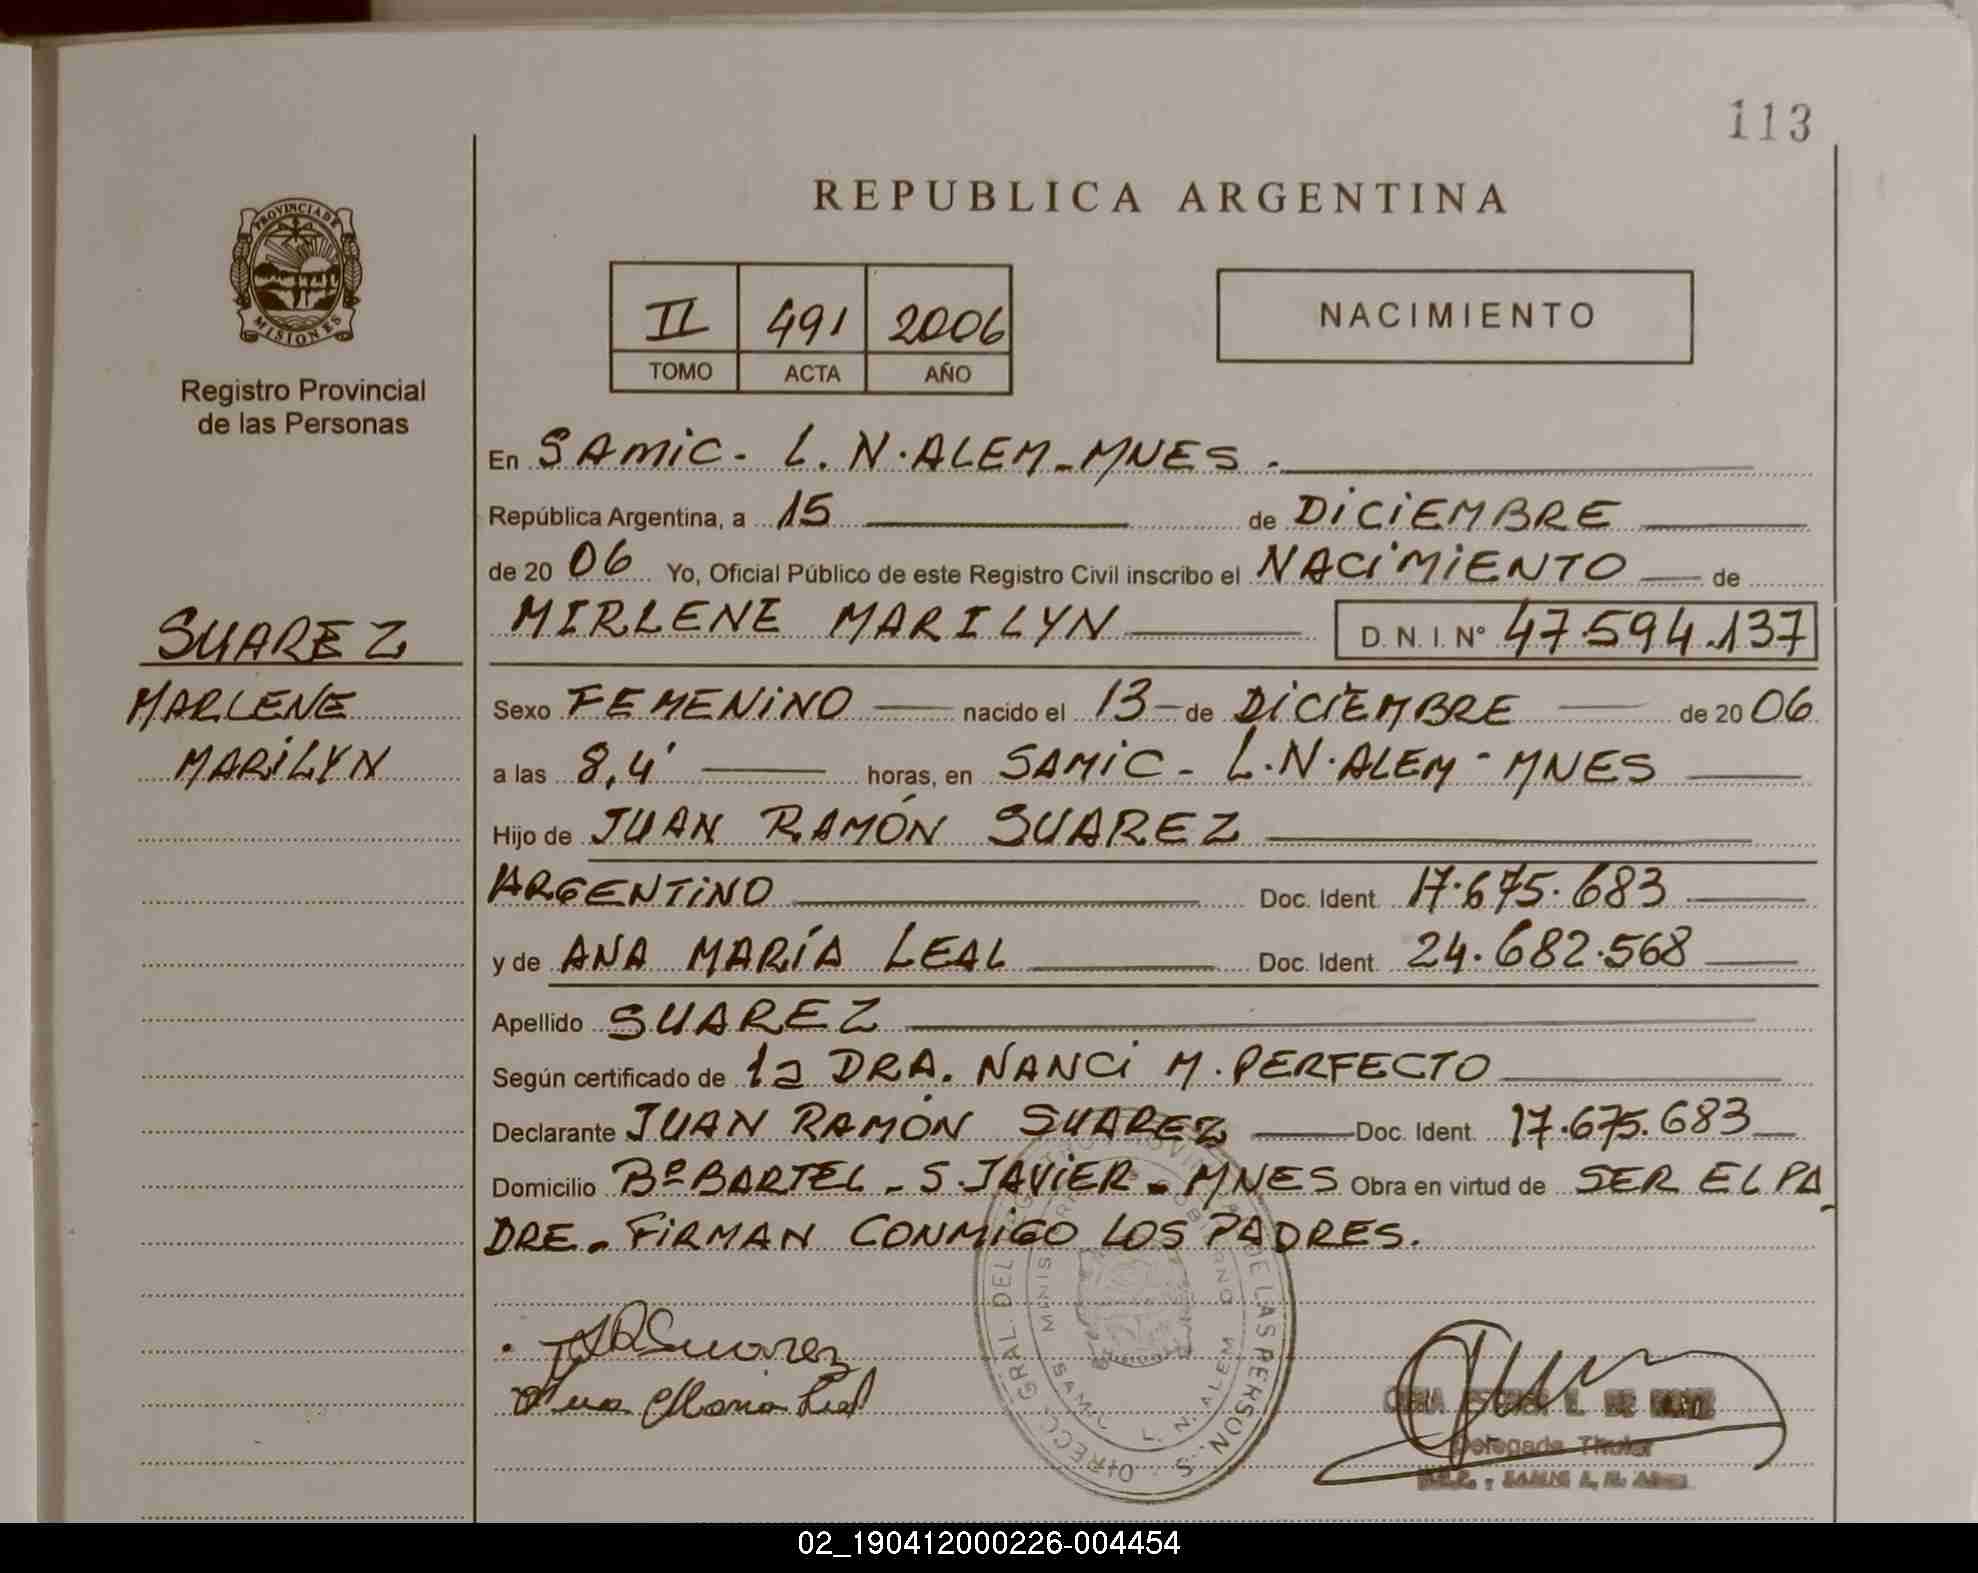 113
REPUBLICA ARGENTINA
PROVINCIA DE
MISIONES
Registro Provincial
de las Personas
II 491 2006
TOMO ACTA AÑO
NACIMIENTO
En SAMIC - L. N. ALEM - MNES.
República Argentina, a 15 de DICIEMBRE
de 20 06 Yo, Oficial Público de este Registro Civil inscribo el NACIMIENTO de
MIRLENE MARILYN D. N. I. Nº 47.594.137
SUAREZ
MARLENE
MARILYN
Sexo FEMENINO nacido el 13 de DICIEMBRE de 20 06
a las 8,4' horas, en SAMIC - L. N. ALEM - MNES
Hijo de JUAN RAMÓN SUAREZ
ARGENTINO Doc. Ident. 17.675.683
y de ANA MARÍA LEAL Doc. Ident. 24.682.568
Apellido SUAREZ
Según certificado de la DRA. NANCI M. PERFECTO
Declarante JUAN RAMÓN SUAREZ Doc. Ident. 17.675.683
Domicilio Bº BARTEL - S. JAVIER - MNES Obra en virtud de SER EL PA
DRE - FIRMAN CONMIGO LOS PADRES.
Suarez
Ana Maria Leal
DIRECC. GRAL. DEL DE LAS PERSON.
L. N. ALEM
Delegada Titular
02_190412000226-004454